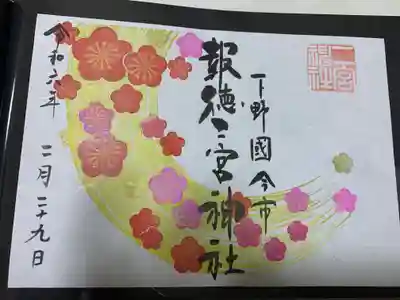 下野國今市
報徳二宮神社
令和六年
二月二十九日